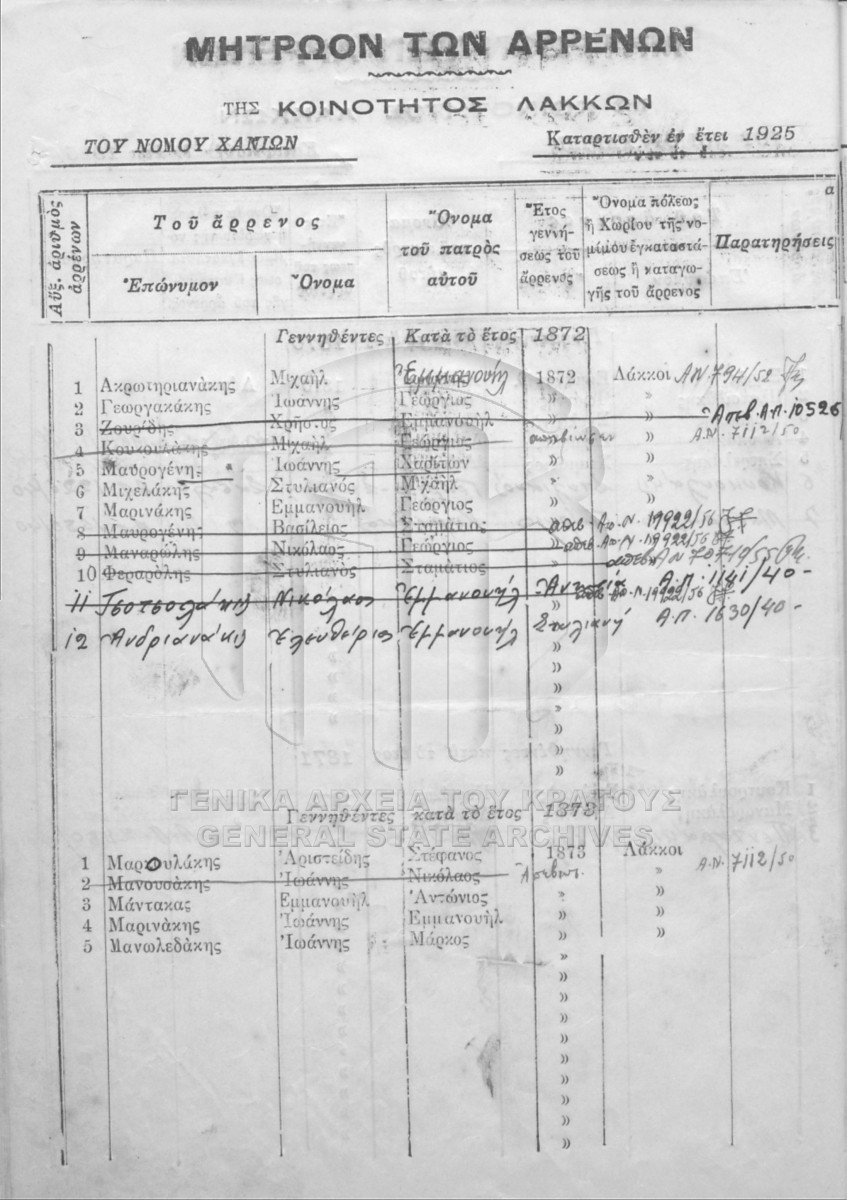 ΜΗΤΡΩΟΝ ΤΩΝ ΑΡΡΕΝΩΝ
ΤΗΣ ΚΟΙΝΟΤΗΤΟΣ ΛΑΚΚΩΝ
ΤΟΥ ΝΟΜΟΥ ΧΑΝΙΩΝ
Καταρτισθὲν ἐν ἔτει 1925
α
Αὔξ. ἀριθμὸς ἀρρένων
Τοῦ ἄρρενος
Ἐπώνυμον
Ὄνομα
Ὄνομα
τοῦ πατρὸς
αὐτοῦ
Ἔτος
γεννή-
σεως τοῦ
ἄρρενος
Ὄνομα πόλεως
ἢ Χωρίου τῆς νο-
μίμου ἐγκαταστά-
σεως ἢ καταγω-
γῆς τοῦ ἄρρενος
Παρατηρήσεις
Γεννηθέντες Κατὰ τὸ ἔτος 1872
1 Ἀκρωτηριανάκης Μιχαὴλ Ἐμμανουήλ 1872 Λάκκοι Α.Ν 794/52
2 Γεωργακάκης Ἰωάννης Γεώργιος » »
3 Ζουρίδης Χρῆστος Ἐμμανουὴλ » » Ἀπεβ. Α.Π. 10526
4 Κουκουλάκης Μιχαὴλ Γεώργιος » Α.Ν. 7112/50
5 Μαυρογένης Ἰωάννης Χαρίτων » »
6 Μιχελάκης Στυλιανός Μιχαὴλ » »
7 Μαρινάκης Ἐμμανουὴλ Γεώργιος » »
8 Μαυρογένης Βασίλειος Σταμάτιος ἀπεβ. Απ. Ν. 19922/56
9 Μαναρώλης Νικόλαος Γεώργιος » ἀπεβ. Απ. Ν. 19922/56
10 Φεραρόλης Στυλιανὸς Σταμάτιος » ἀπεβ. ΑΝ
11 Νικόλαος Ἐμμανουήλ Α.Π. 1141/40 -
19922/56
12 Ἀνδριανάκις Ἐλευθέριος Ἐμμανουήλ Στυλιανή Α.Π. 1630/40 -
»
»
»
»
»
»
»
ΓΕΝΙΚΑ ΑΡΧΕΙΑ ΤΟΥ ΚΡΑΤΟΥΣ
Γεννηθέντες κατὰ τὸ ἔτος 1873
GENERAL STATE ARCHIVES
1 Μαρκουλάκης Ἀριστείδης Στέφανος 1873 Λάκκοι
2 Μανουσάκης Ἰωάννης Νικόλαος Ἀπεβιω. » Α.Ν. 7112/50
3 Μάντακας Ἐμμανουὴλ Ἀντώνιος » »
4 Μαρινάκης Ἰωάννης Ἐμμανουὴλ » »
5 Μανωλεδάκης Ἰωάννης Μάρκος » »
»
»
»
»
»
»
»
»
»
»